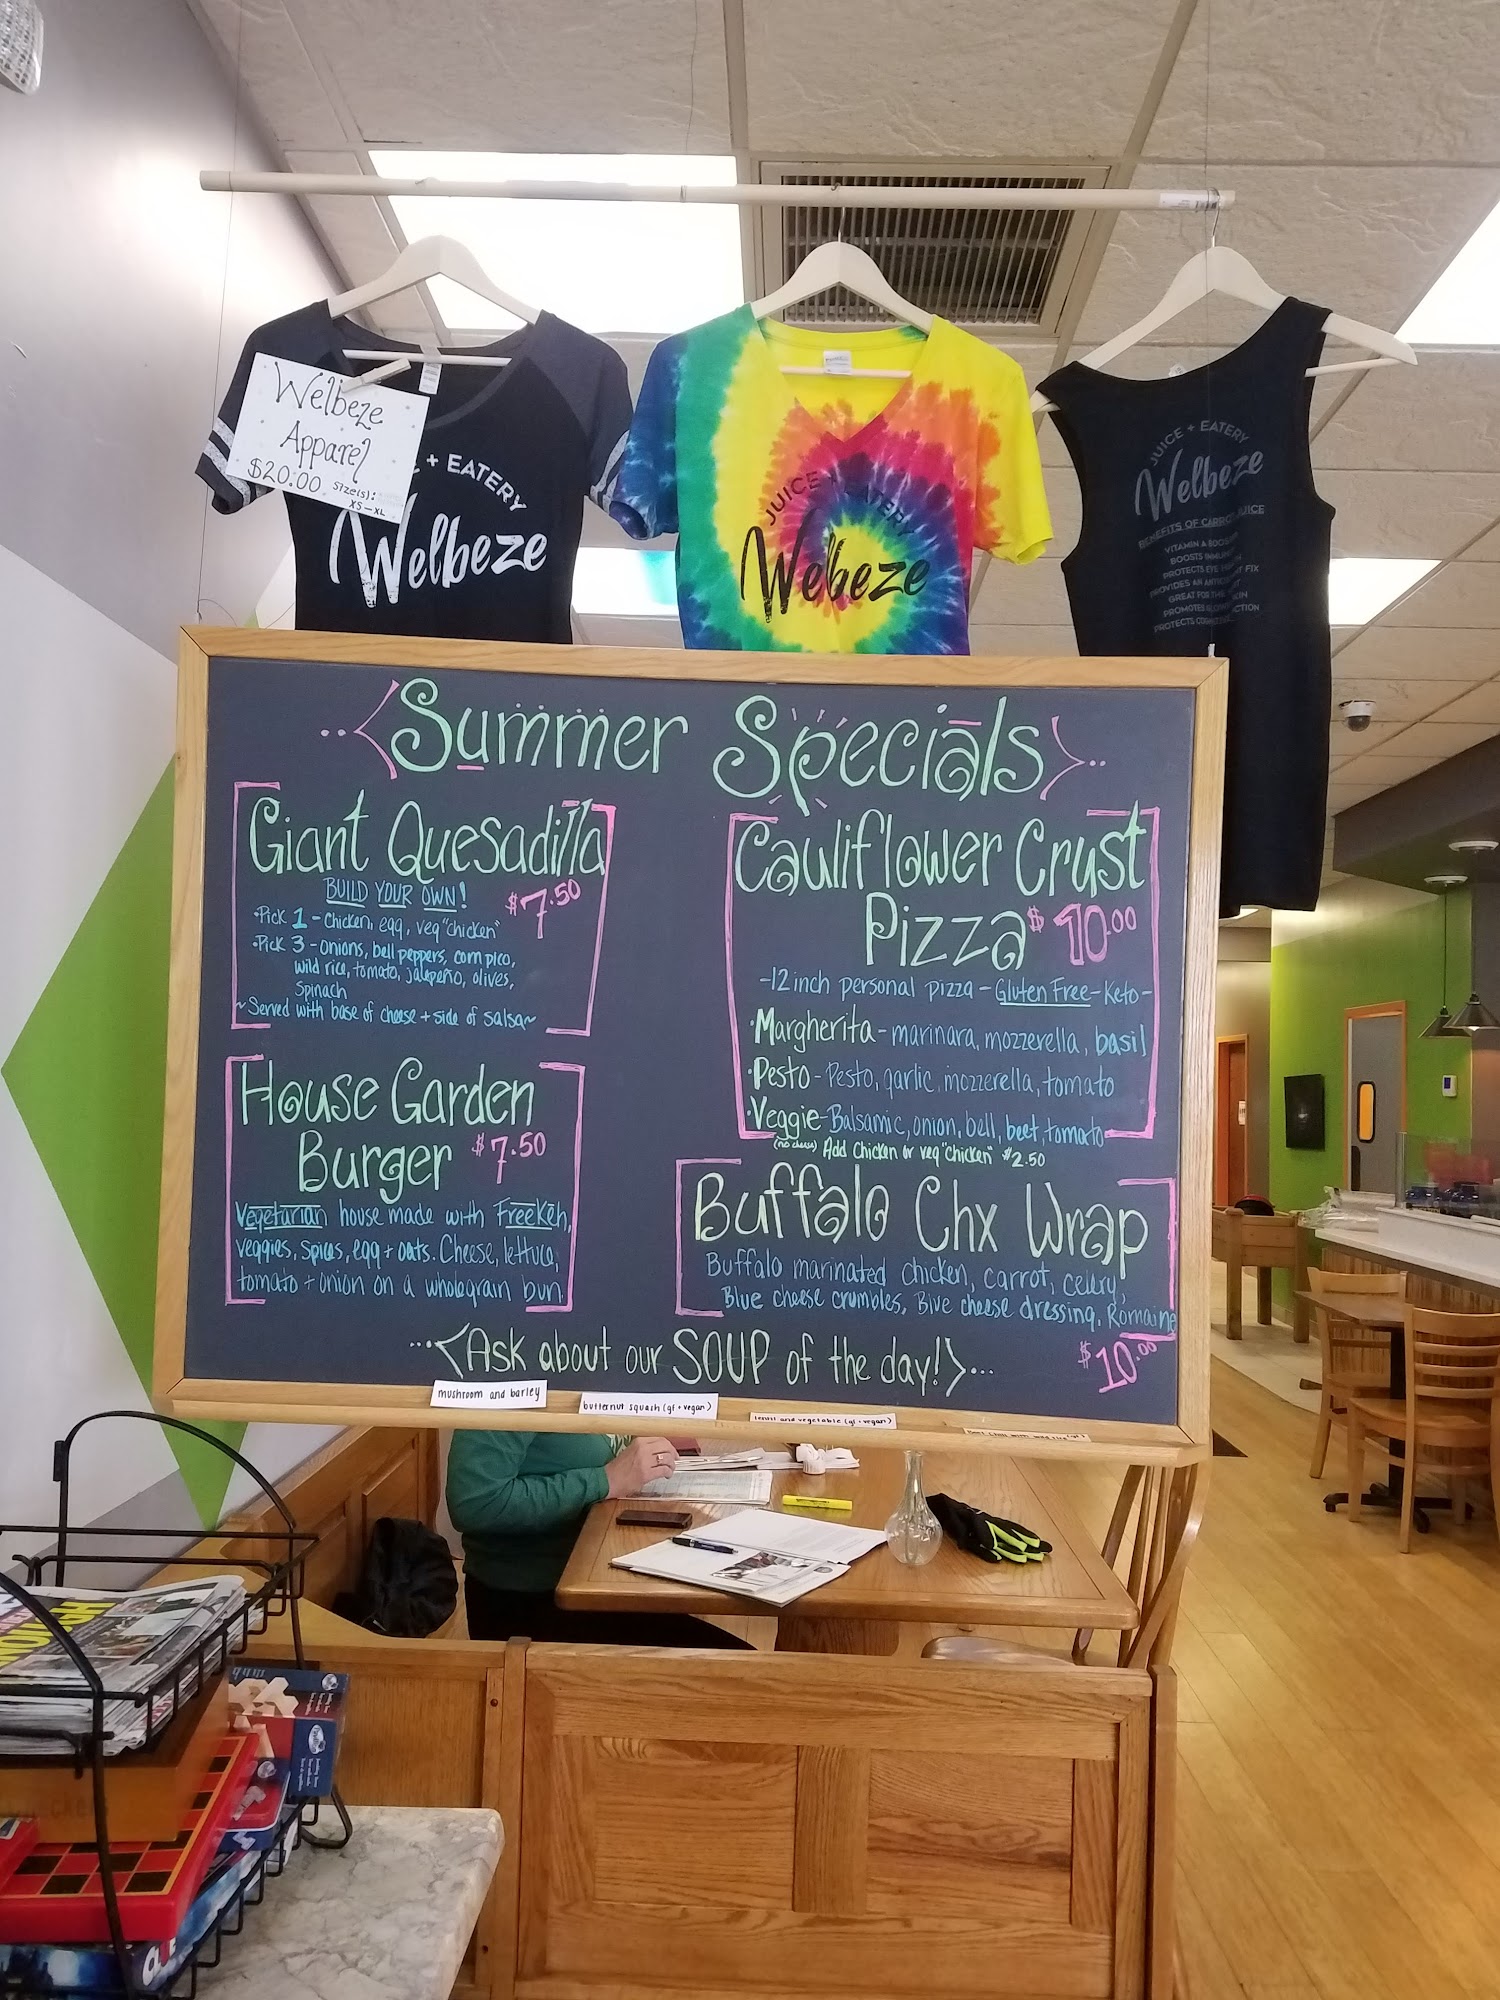 Welbeze
Apparel
$20.00 Size(s):
XS-XL
+ EATERY
Welbeze
JUICE + EATERY
Welbeze
JUICE + EATERY
Welbeze
BENEFITS OF CARROT JUICE
VITAMIN A
BOOSTS
PROTECTS EYE
PROVIDES AN
GREAT FOR THE
PROMOTES
PROTECTS
Summer Specials
Giant Quesadilla
BUILD YOUR OWN! $7.50
•Pick 1 - Chicken, egg, veg "chicken"
•Pick 3 - onions, bell peppers, corn pico,
wild rice, tomato, jalapeño, olives,
spinach
~Served with base of cheese + side of salsa~
House Garden
Burger $7.50
Vegetarian house made with FreeKeh,
veggies, spices, egg + oats. Cheese, lettuce,
tomato + onion on a wholegrain bun.
Cauliflower Crust
Pizza $10.00
-12 inch personal pizza - Gluten Free - Keto-
•Margherita - marinara, mozzerella, basil
•Pesto - Pesto, garlic, mozzerella, tomato
•Veggie - Balsamic, onion, bell, beet, tomato
(no cheese) Add Chicken or veg "chicken" $2.50
Buffalo Chx Wrap
Buffalo marinated chicken, carrot, celery,
Blue cheese crumbles, Blue cheese dressing, Romaine
$10.00
...<Ask about our SOUP of the day!>...
mushroom and barley
butternut squash (gf + vegan)
lentil and vegetable (gf + vegan)
beef chili with wild rice (gf)